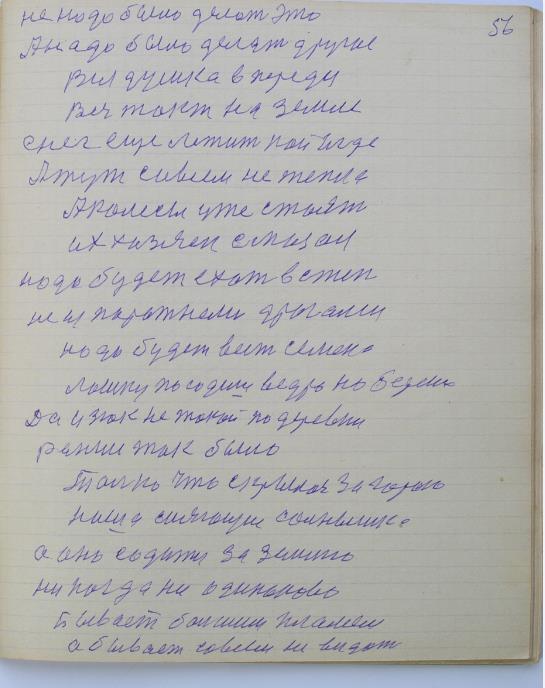 56
не надо было делат это
А надо было делат другое
вся душка в переди
всё такт на земле
снег еще лежит кой где
А тут совсем не тепла
А колесы уже стоят
их хазяен смазал
надо будет ехат в степ
не с порожнеми дрогами
надо будет вест семена
ложку погодии ведро на беремя
Да и язок не такой по деревни
ранши так было
Толко что скрылос за горою
наша сияющие солнышка
а оно содитца за землю
ни когда ни одинаково
Бывает болшим пламем
а бывает совсем не видат